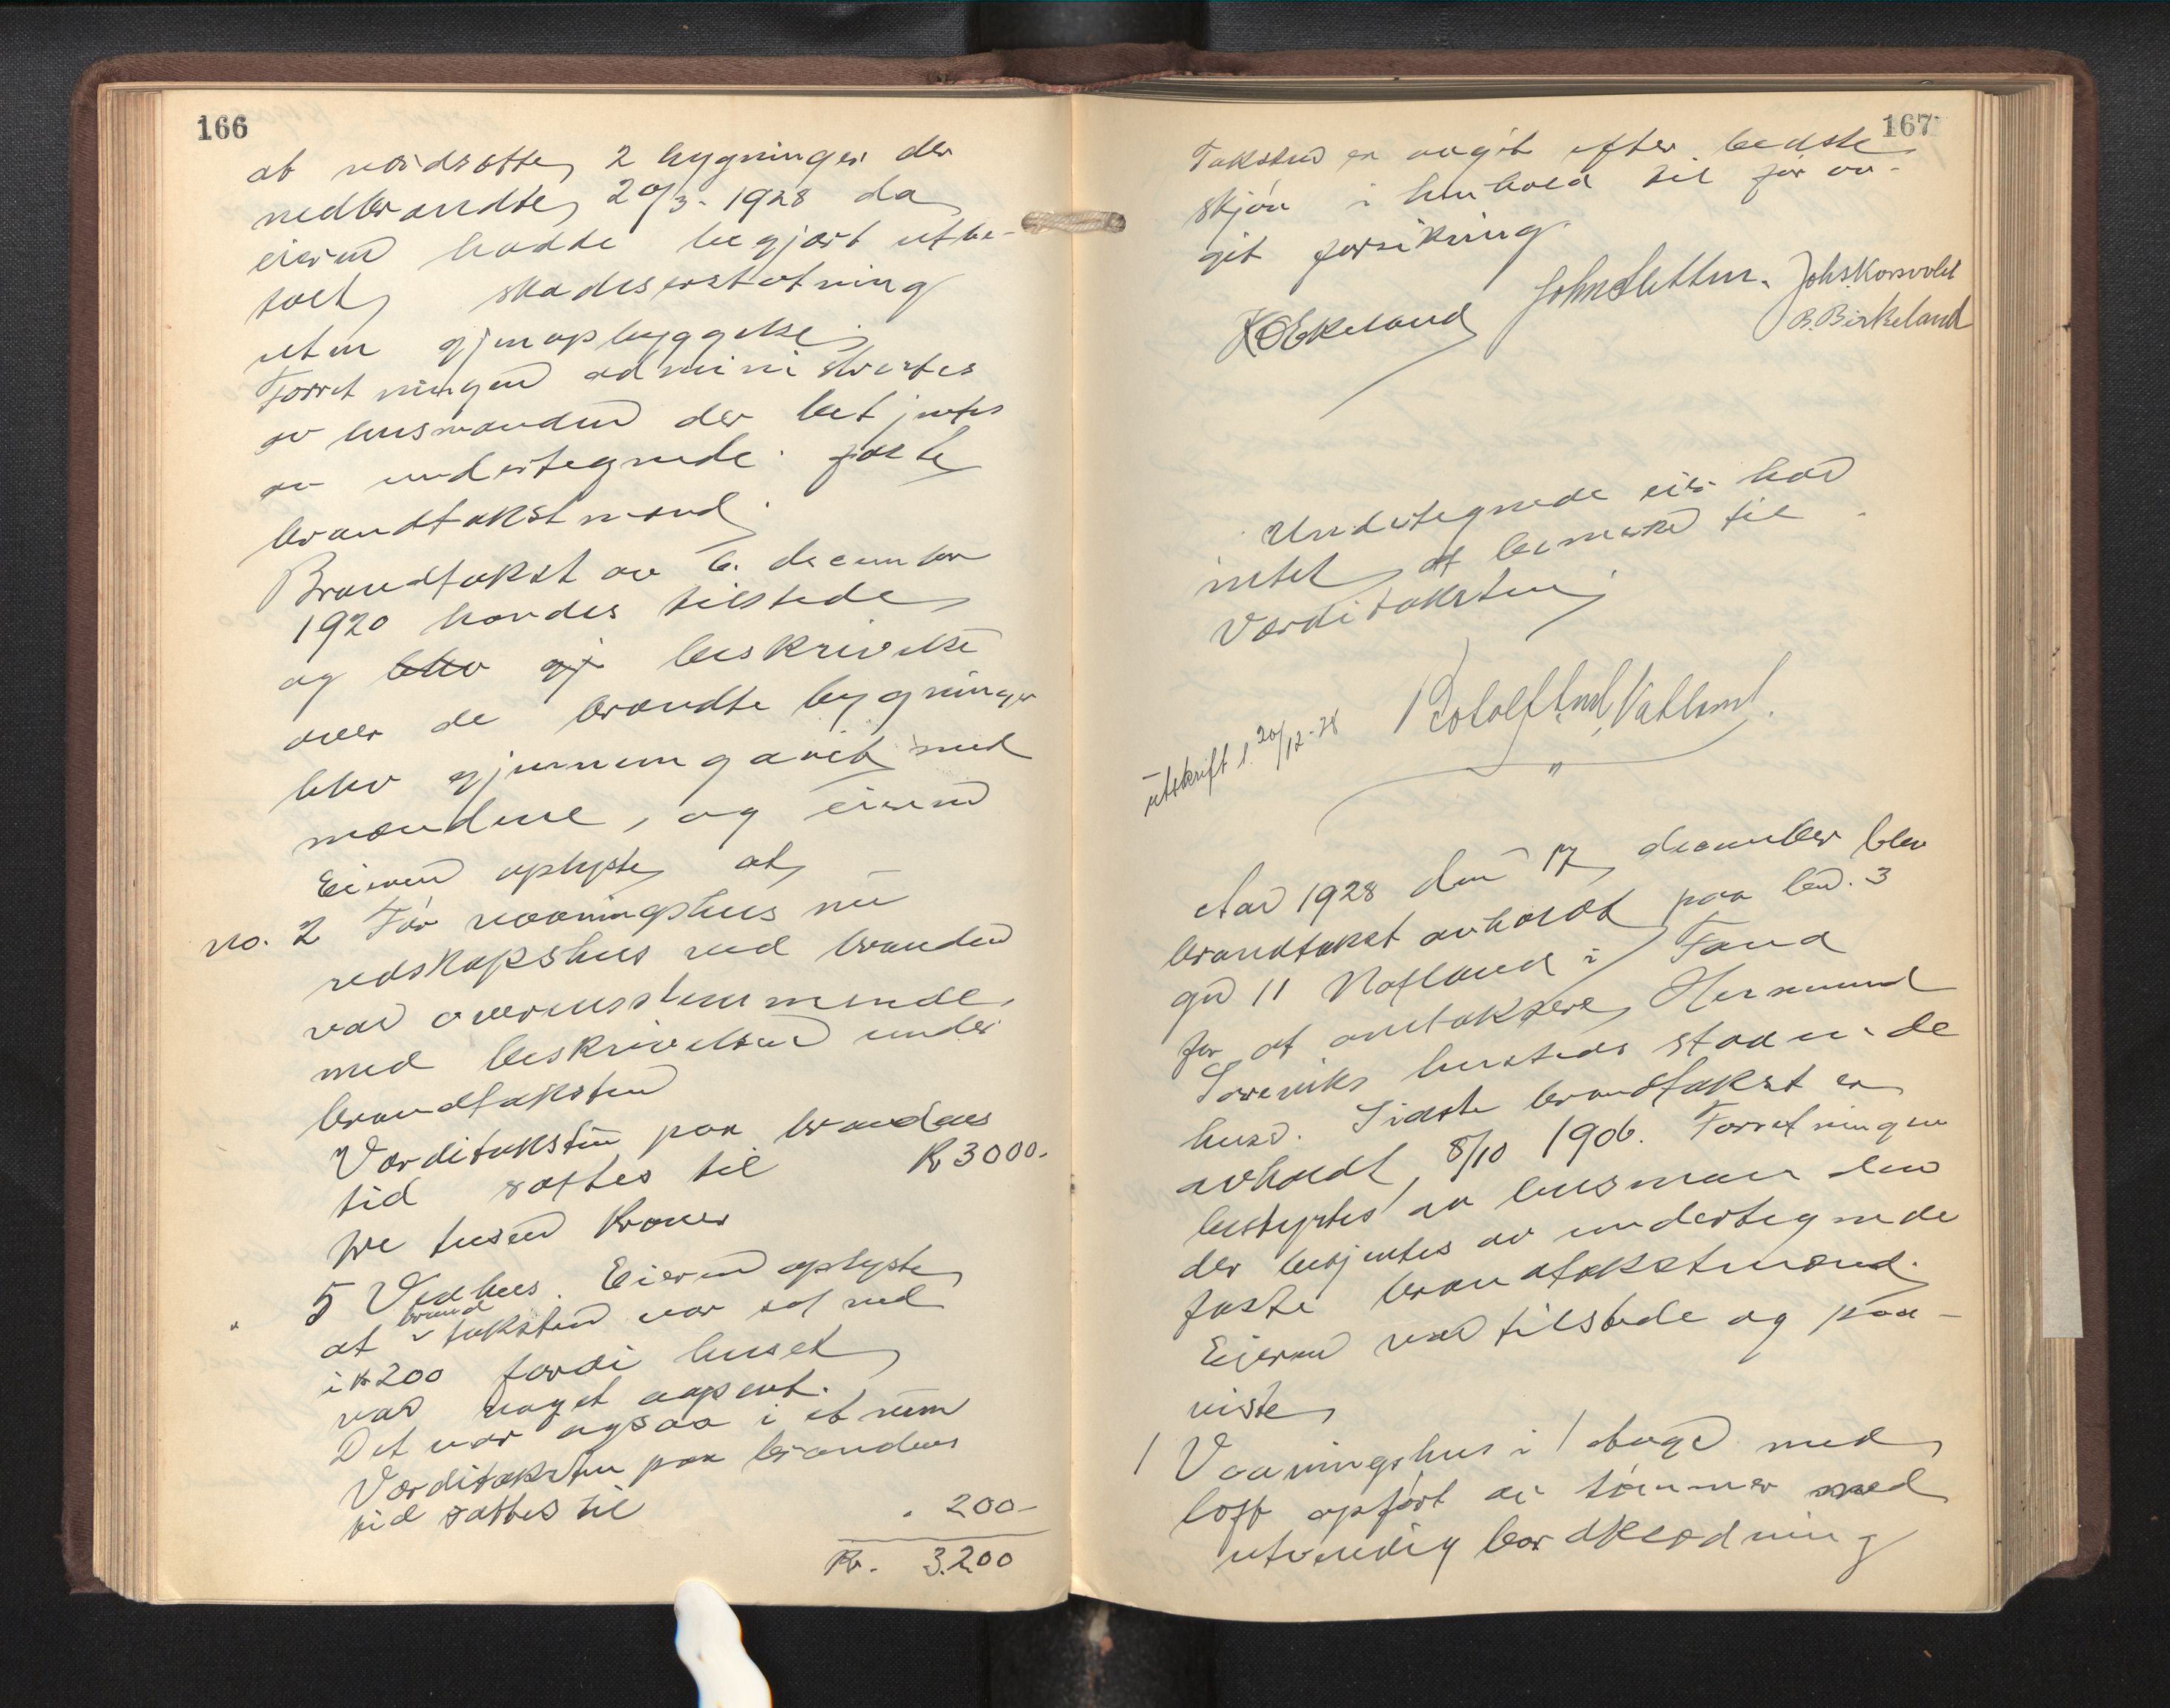 166
at værdsætte 2 bygninger der
nedbrændte 20/3-1928 da
eieren hadde begjært utbe-
talt skadeserstatning
uten gjenopbyggelse.
Forretningen administrertes
av lensmanden der betjentes
av undertegnede faste
brandtakstmænd.
Brandtakst av 6. december
1920 havdes tilstede
og blev gj beskrivelse
over de brændte bygninger
blev gjennemgaaet med
mændene, og eieren
Eieren oplyste at
no. 2 Før vaaningshus nu
redskapshus ved branden
var overensstemmende
med beskrivelsen under
brandtaksten
Værditaksten paa brandens
tid sættes til Kr 3000.
tre tusen kroner
" 5 Vedhus. Eieren oplyste
at brandtaksten var sat ned
i kr 200 fordi huset
var noget aapent.
Det var ogsaa i et rum
Værditaksten paa brandens
tid sættes til . 200-
Kr. 3.200
167
Taksten er avgit efter bedste
skjøn i henhold til før av-
git forsikring.
K O Ekeland John Sletten. Johs. Korsvold
B. Birkeland
Undertegnede eier har
intet at bemerke til
Værditaksten
Vatland.
utskrift s. 20/12-28
"
Aar 1928 den 17 december blev
brandtakst avholdt paa br. 3
gr 11 Natland i Fana
for at omtaksere Hermund
hersteds staaende
huse. Sidste brandtakst er
avholdt 8/10 1906. Forretningen
bestyrtes av lensmanden
der betjentes av undertegnede
faste brandtakstmænd.
Eieren var tilstede og paa-
viste
1 Vaaningshus i 1 etage med
loft opført av tømmer med
utvendig bordklædning